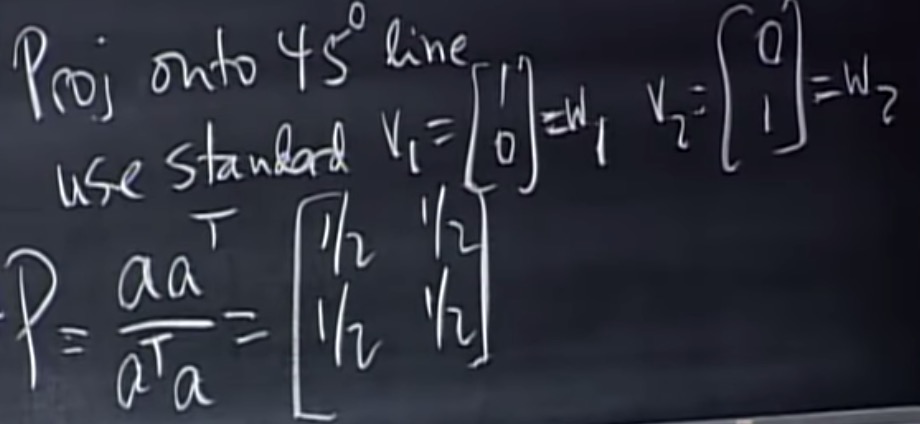 Proj onto 45° line
use standard v₁ = [1 0] = w₁ v₂ = [0 1] = w₂
P = aaᵀ / aᵀa = [1/2 1/2
1/2 1/2]